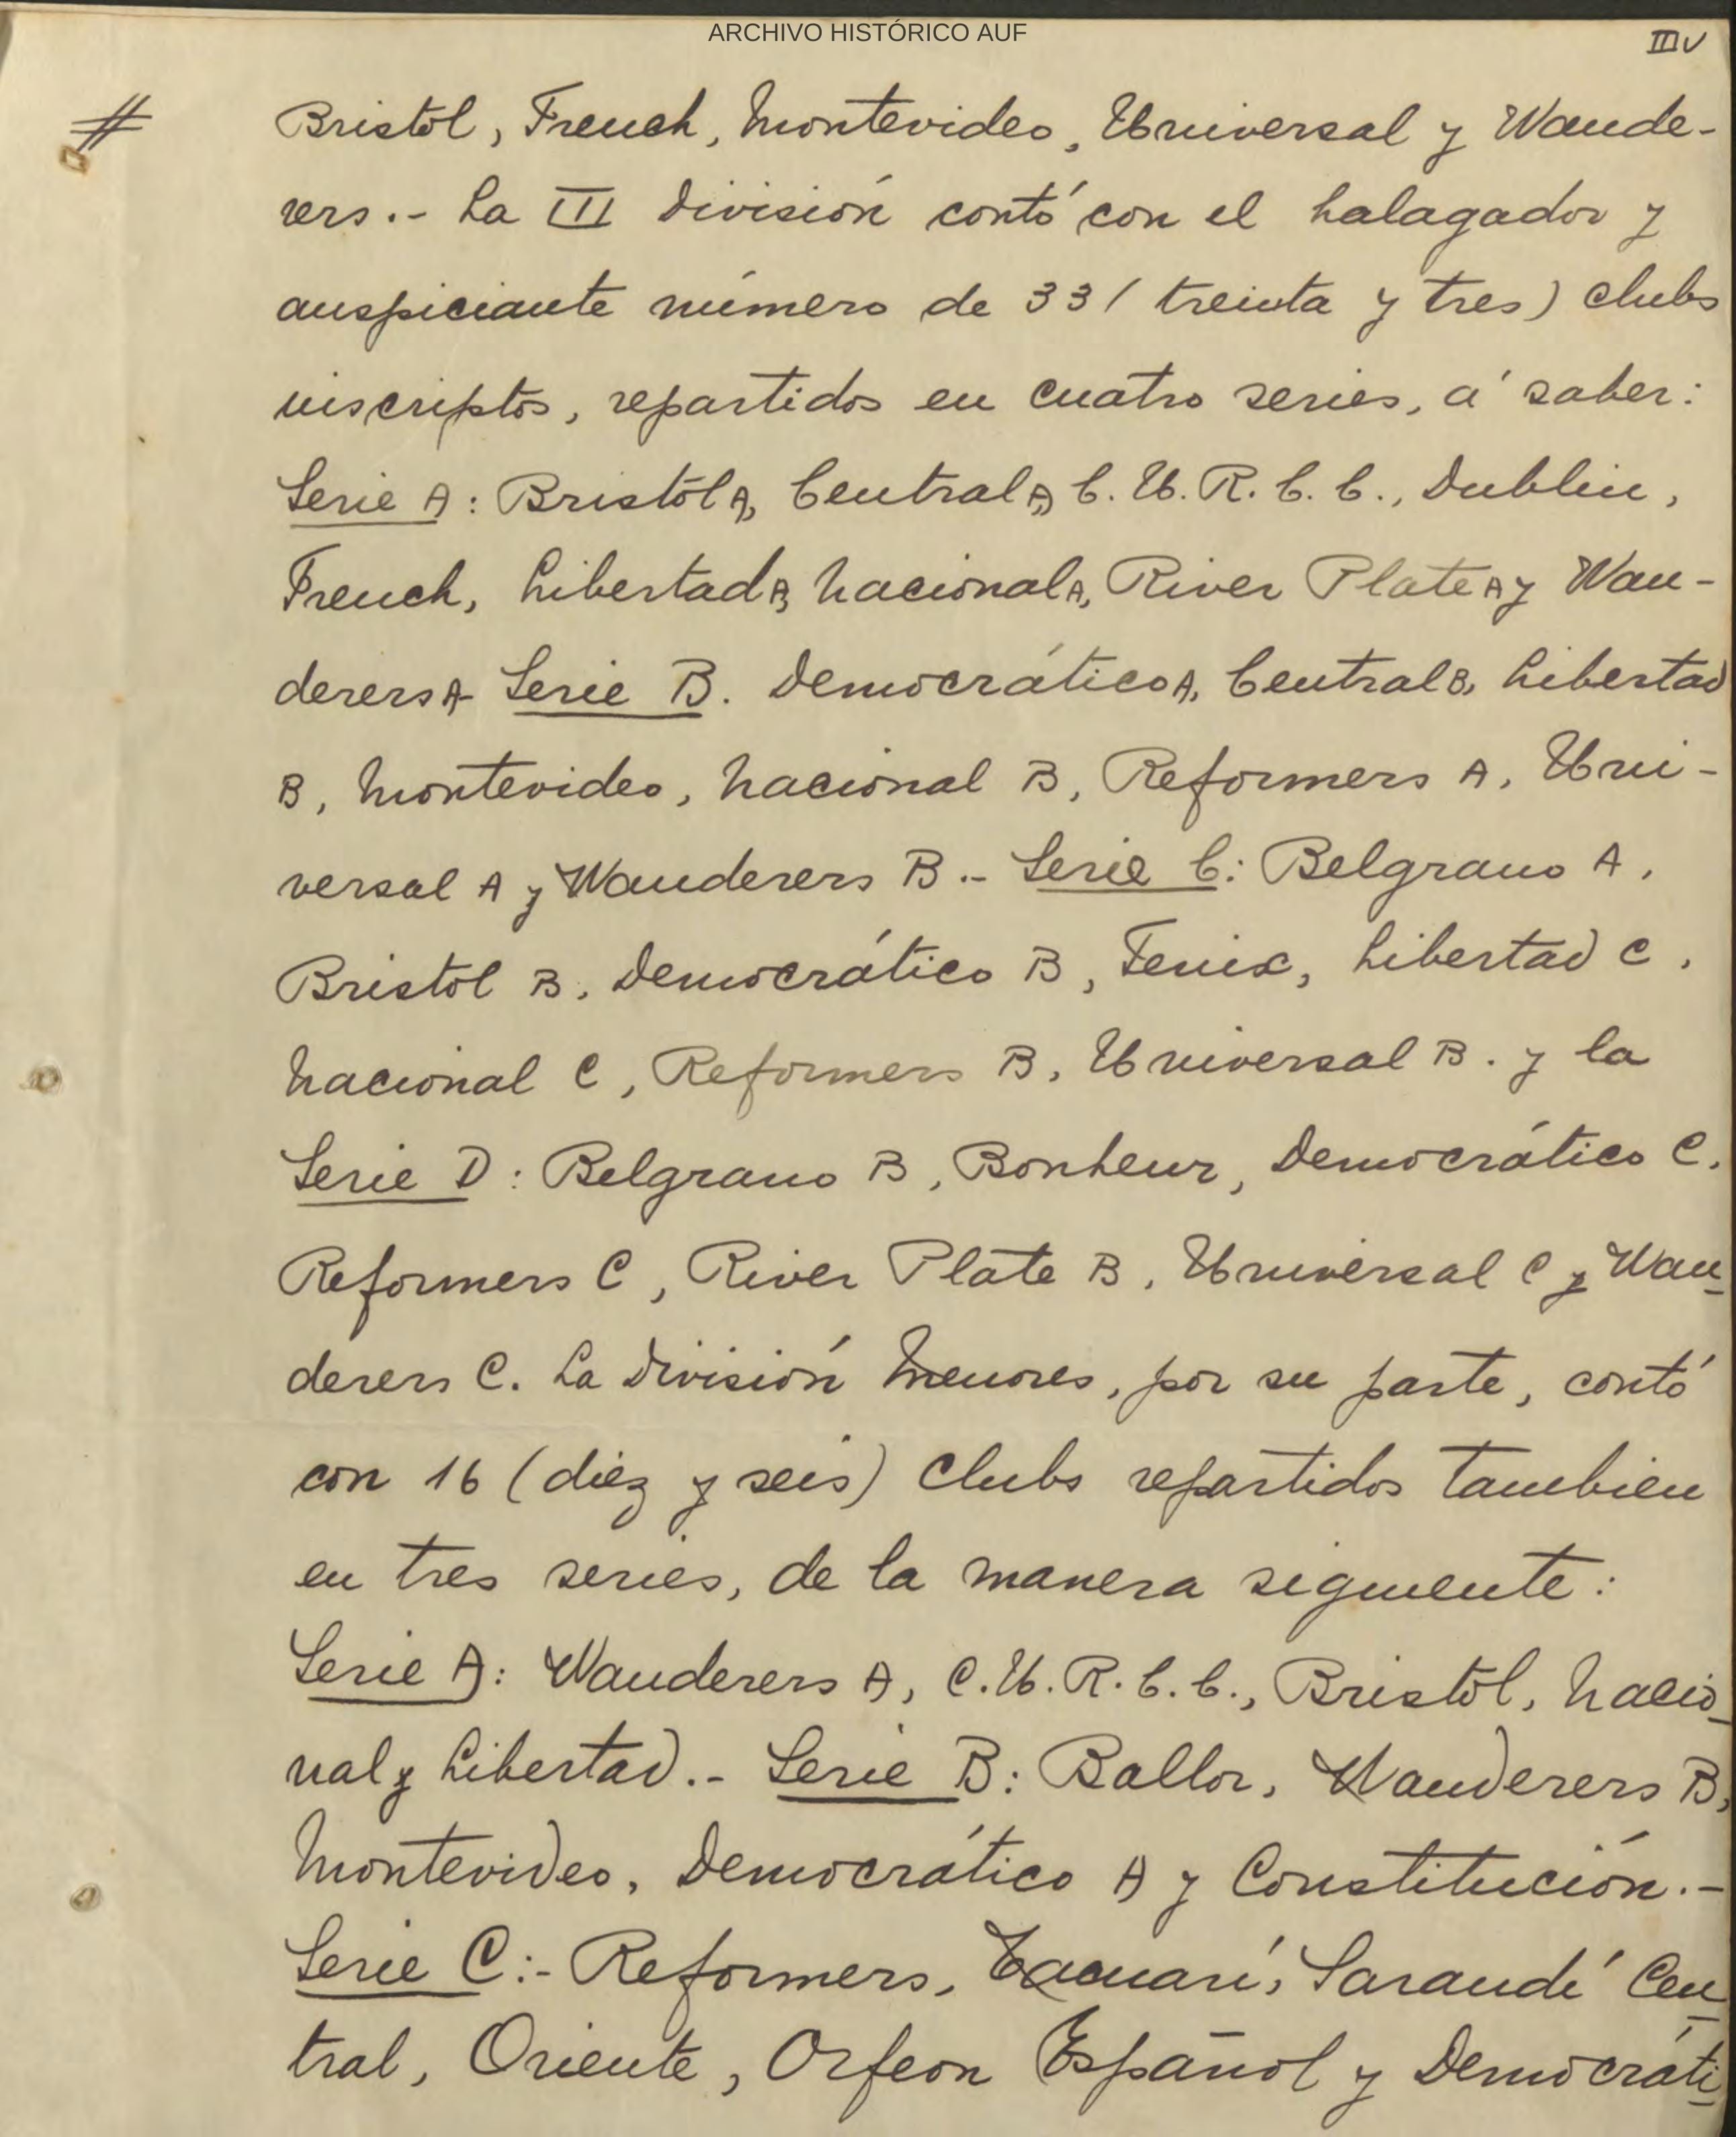 ARCHIVO HISTÓRICO AUF
III v
#
Bristol, French, Montevideo, Universal y Wande-
rers.- La III División contó con el halagador y
auspiciante número de 33 (treinta y tres) clubs
inscriptos, repartidos en cuatro series, á saber:
Serie A: Bristol A, Central A, C.U.R.C.C., Dublin,
French, Libertad A, Nacional A, River Plate A y Wan-
derers A- Serie B. Democrático A, Central B, Libertad
B, Montevideo, Nacional B, Reformers A, Uni-
versal A y Wanderers B.- Serie C: Belgrano A,
Bristol B, Democrático B, Fenix, Libertad C,
Nacional C, Reformers B, Universal B. y la
Serie D: Belgrano B, Bonheur, Democrático C.
Reformers C, River Plate B, Universal C y Wan-
derers C. La División Menores, por su parte, contó
con 16 (diez y seis) clubs repartidos tambien
en tres series, de la manera siguiente:
Serie A: Wanderers A, C.U.R.C.C., Bristol, Nacio-
nal y Libertad.- Serie B: Ballor, Wanderers B,
Montevideo, Democrático A y Constitución.-
Serie C:- Reformers, Tacuarí, Sarandí Cen-
tral, Oriente, Orfeon Español y Democráti-